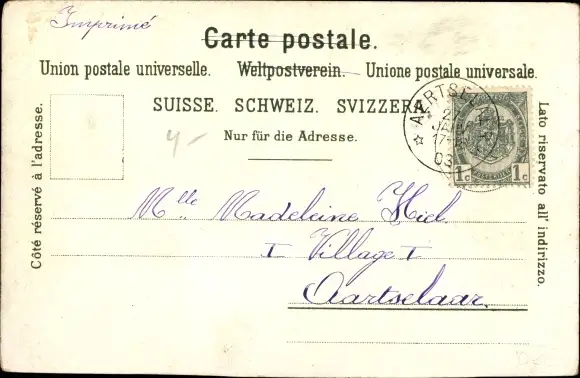 Imprimé
Carte postale.
Union postale universelle. Weltpostverein. Unione postale universale.
SUISSE. SCHWEIZ. SVIZZERA.
Nur für die Adresse.
Côté réservé à l'adresse.
Lato riservato all' indirizzo.
AERTSEL
JAN
17-
03
1c 1c
4-
Mlle Madeleine Hiel
I Village I
Aartselaar.